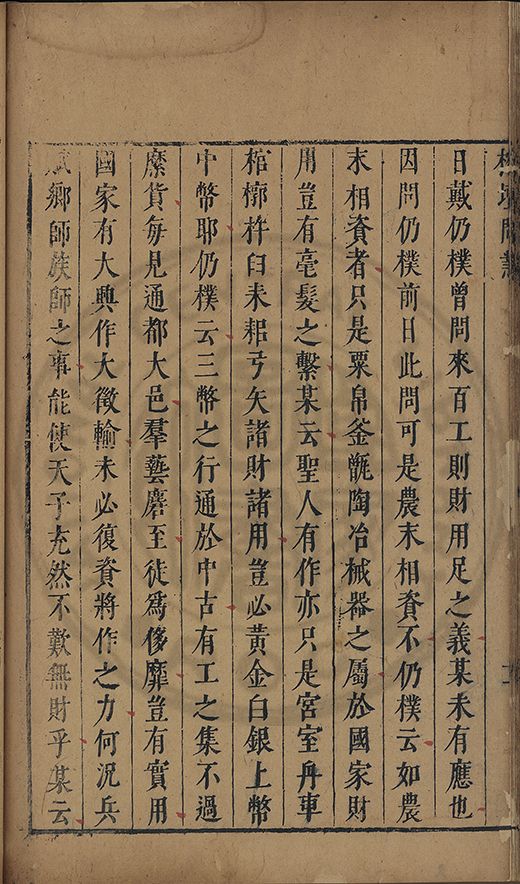 日戴仍樸曾問來百工則財用足之義某未有應也
因問仍樸前日此問可是農末相資不仍樸云如農
末相資者只是粟帛釜甑陶冶械器之屬於國家財
用豈有毫髮之繫某云聖人有作亦只是宮室舟車
棺槨杵臼耒耜弓矢諸財諸用豈必黃金白銀上幣
中幣耶仍樸云三幣之行通於中古有工之集不過
縻貨每見通都大邑羣藝麏至徒為侈靡豈有實用
國家有大興作大徵輸未必復資將作之力何況兵
鄉師族師之事能使天子充然不歎無財乎某云